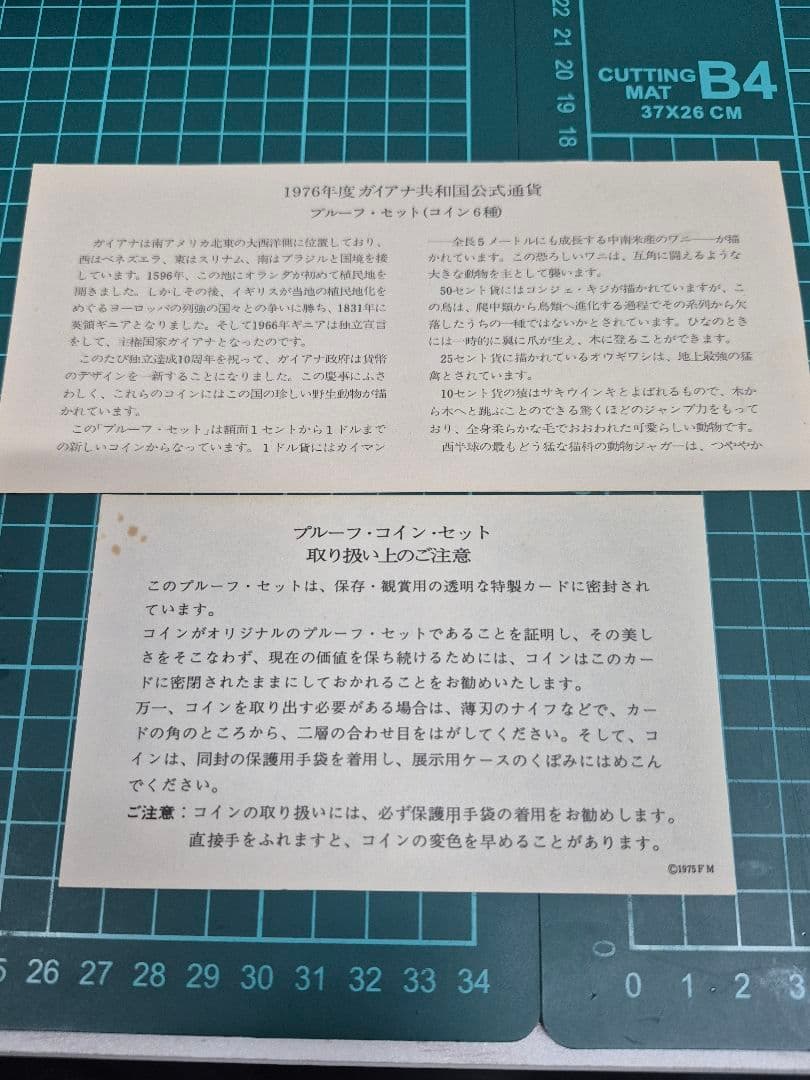 22
21
20
19
18
CUTTING MAT B4
37X26 CM
1976年度ガイアナ共和国公式通貨
プルーフ・セット(コイン6種)
ガイアナは南アメリカ北東の大西洋側に位置しており、
西はベネズエラ、東はスリナム、南はブラジルと国境を接
しています。1596年、この地にオランダが初めて植民地を
開きました。しかしその後、イギリスが当地の植民地化を
めぐるヨーロッパの列強の国々との争いに勝ち、1831年に
英領ギニアとなりました。そして1966年ギニアは独立宣言
をして、主権国家ガイアナとなったのです。
このたび独立達成10周年を祝って、ガイアナ政府は貨幣
のデザインを一新することになりました。この慶事にふさ
わしく、これらのコインにはこの国の珍しい野生動物が描
かれています。
この「プルーフ・セット」は額面1セントから1ドルまで
の新しいコインからなっています。1ドル貨にはカイマン
――全長5メートルにも成長する中南米産のワニ――が描
かれています。この恐ろしいワニは、互角に闘えるような
大きな動物を主として襲います。
50セント貨にはコンジェ・キジが描かれていますが、こ
の鳥は、爬中類から鳥類へ進化する過程でその系列から欠
落したうちの一種ではないかとされています。ひなのとき
には一時的に翼に爪が生え、木に登ることができます。
25セント貨に描かれているオウギワシは、地上最強の猛
禽とされています。
10セント貨の猿はサキウインキとよばれるもので、木か
ら木へと跳ぶことのできる驚くほどのジャンプ力をもって
おり、全身柔らかな毛でおおわれた可愛らしい動物です。
西半球の最もどう猛な猫科の動物ジャガーは、つややか
プルーフ・コイン・セット
取り扱い上のご注意
このプルーフ・セットは、保存・観賞用の透明な特製カードに密封され
ています。
コインがオリジナルのプルーフ・セットであることを証明し、その美し
さをそこなわず、現在の価値を保ち続けるためには、コインはこのカー
ドに密閉されたままにしておかれることをお勧めいたします。
万一、コインを取り出す必要がある場合は、薄刃のナイフなどで、カー
ドの角のところから、二層の合わせ目をはがしてください。そして、コ
インは、同封の保護用手袋を着用し、展示用ケースのくぼみにはめこん
でください。
ご注意：コインの取り扱いには、必ず保護用手袋の着用をお勧めします。
直接手をふれますと、コインの変色を早めることがあります。
©1975 F M
0
5 26 27 28 29 30 31 32 33 34
0 1 2 3